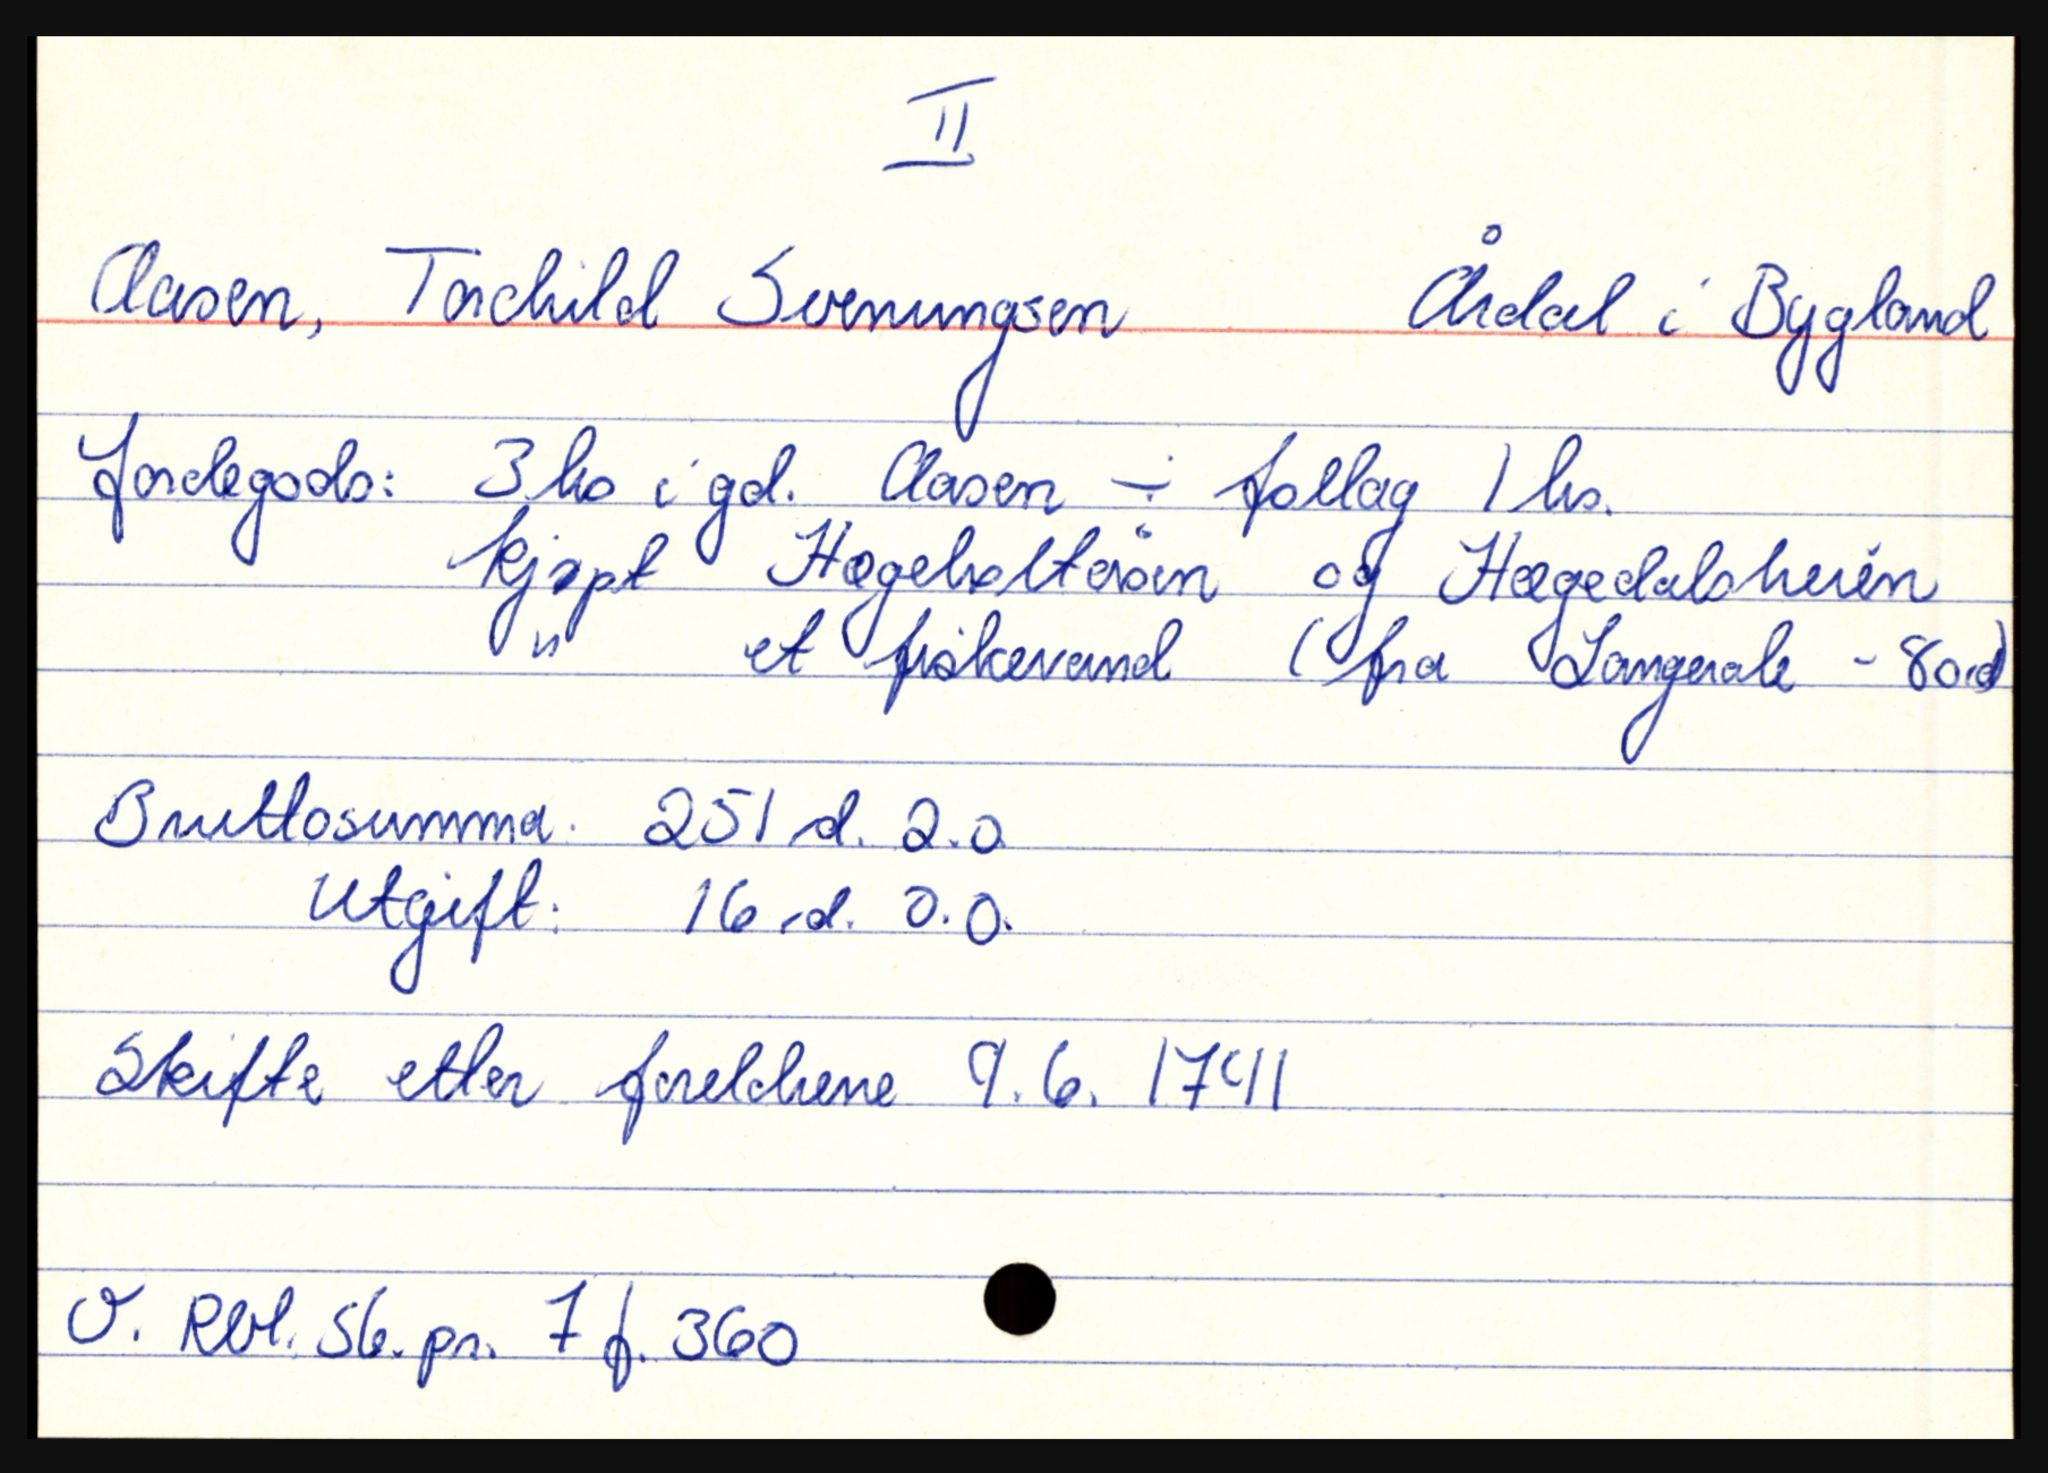 II
Aasen, Torchild Svenungsen Årdal i Bygland
Jordegods: 3 hs i gd. Aasen ÷ follag 1 hs.
kjøpt Hægeholtåsen og Hægedalsheien
" et fiskevand (fra Langerak - 80 d)
Bruttosumma: 251 d. 2. 0
Utgift: 16 d. 0. 0.
Skifte etter foreldrene 9. 6. 1741
V. Rbl. Sk. pr. 7 f. 360